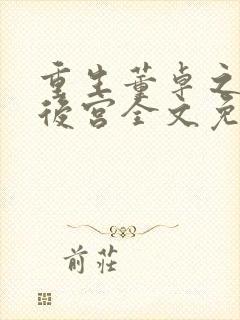 重生董卓之
後宮全文免
前莊